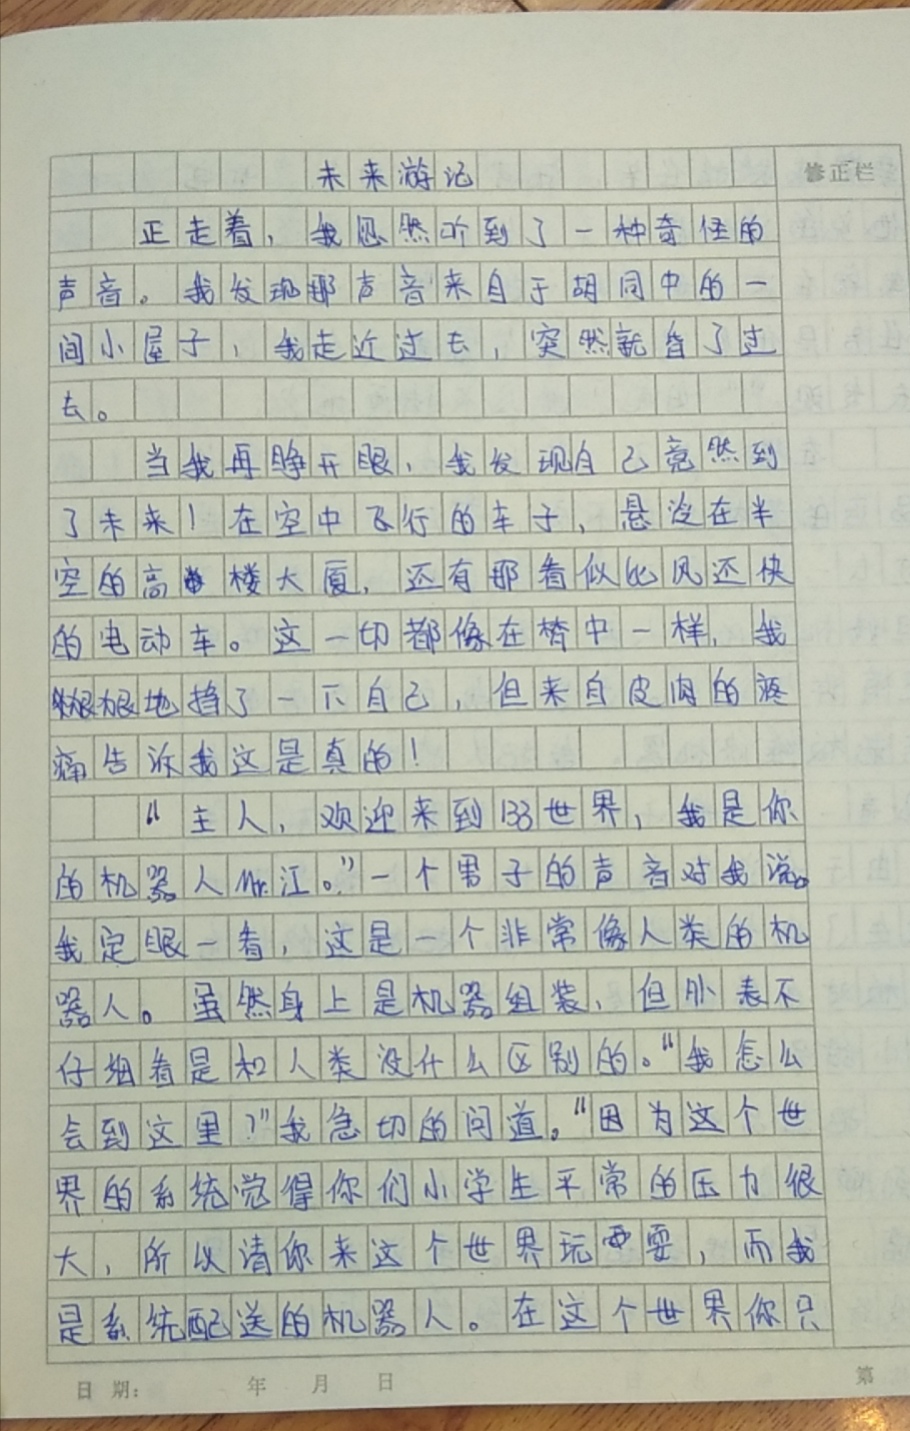 未来游记
修正栏
正走着，我忽然听到了一种奇怪的
声音。我发现那声音来自于胡同中的一
间小屋子，我走近过去，突然就昏了过
去。
当我再睁开眼，我发现自己竟然到
了未来！在空中飞行的车子，悬浮在半
空的高楼大厦，还有那看似比风还快
的电动车。这一切都像在梦中一样，我
狠狠地掐了一下自己，但来自皮肉的疼
痛告诉我这是真的！
“主人，欢迎来到133世界，我是你
的机器人Mr.江。”一个男子的声音对我说。
我定眼一看，这是一个非常像人类的机
器人。虽然身上是机器组装，但外表不
仔细看是和人类没什么区别的。“我怎么
会到这里？”我急切的问道。“因为这个世
界的系统觉得你们小学生平常的压力很
大，所以请你来这个世界玩耍耍，而我
是系统配送的机器人。在这个世界你只
日 期： 年 月 日
第